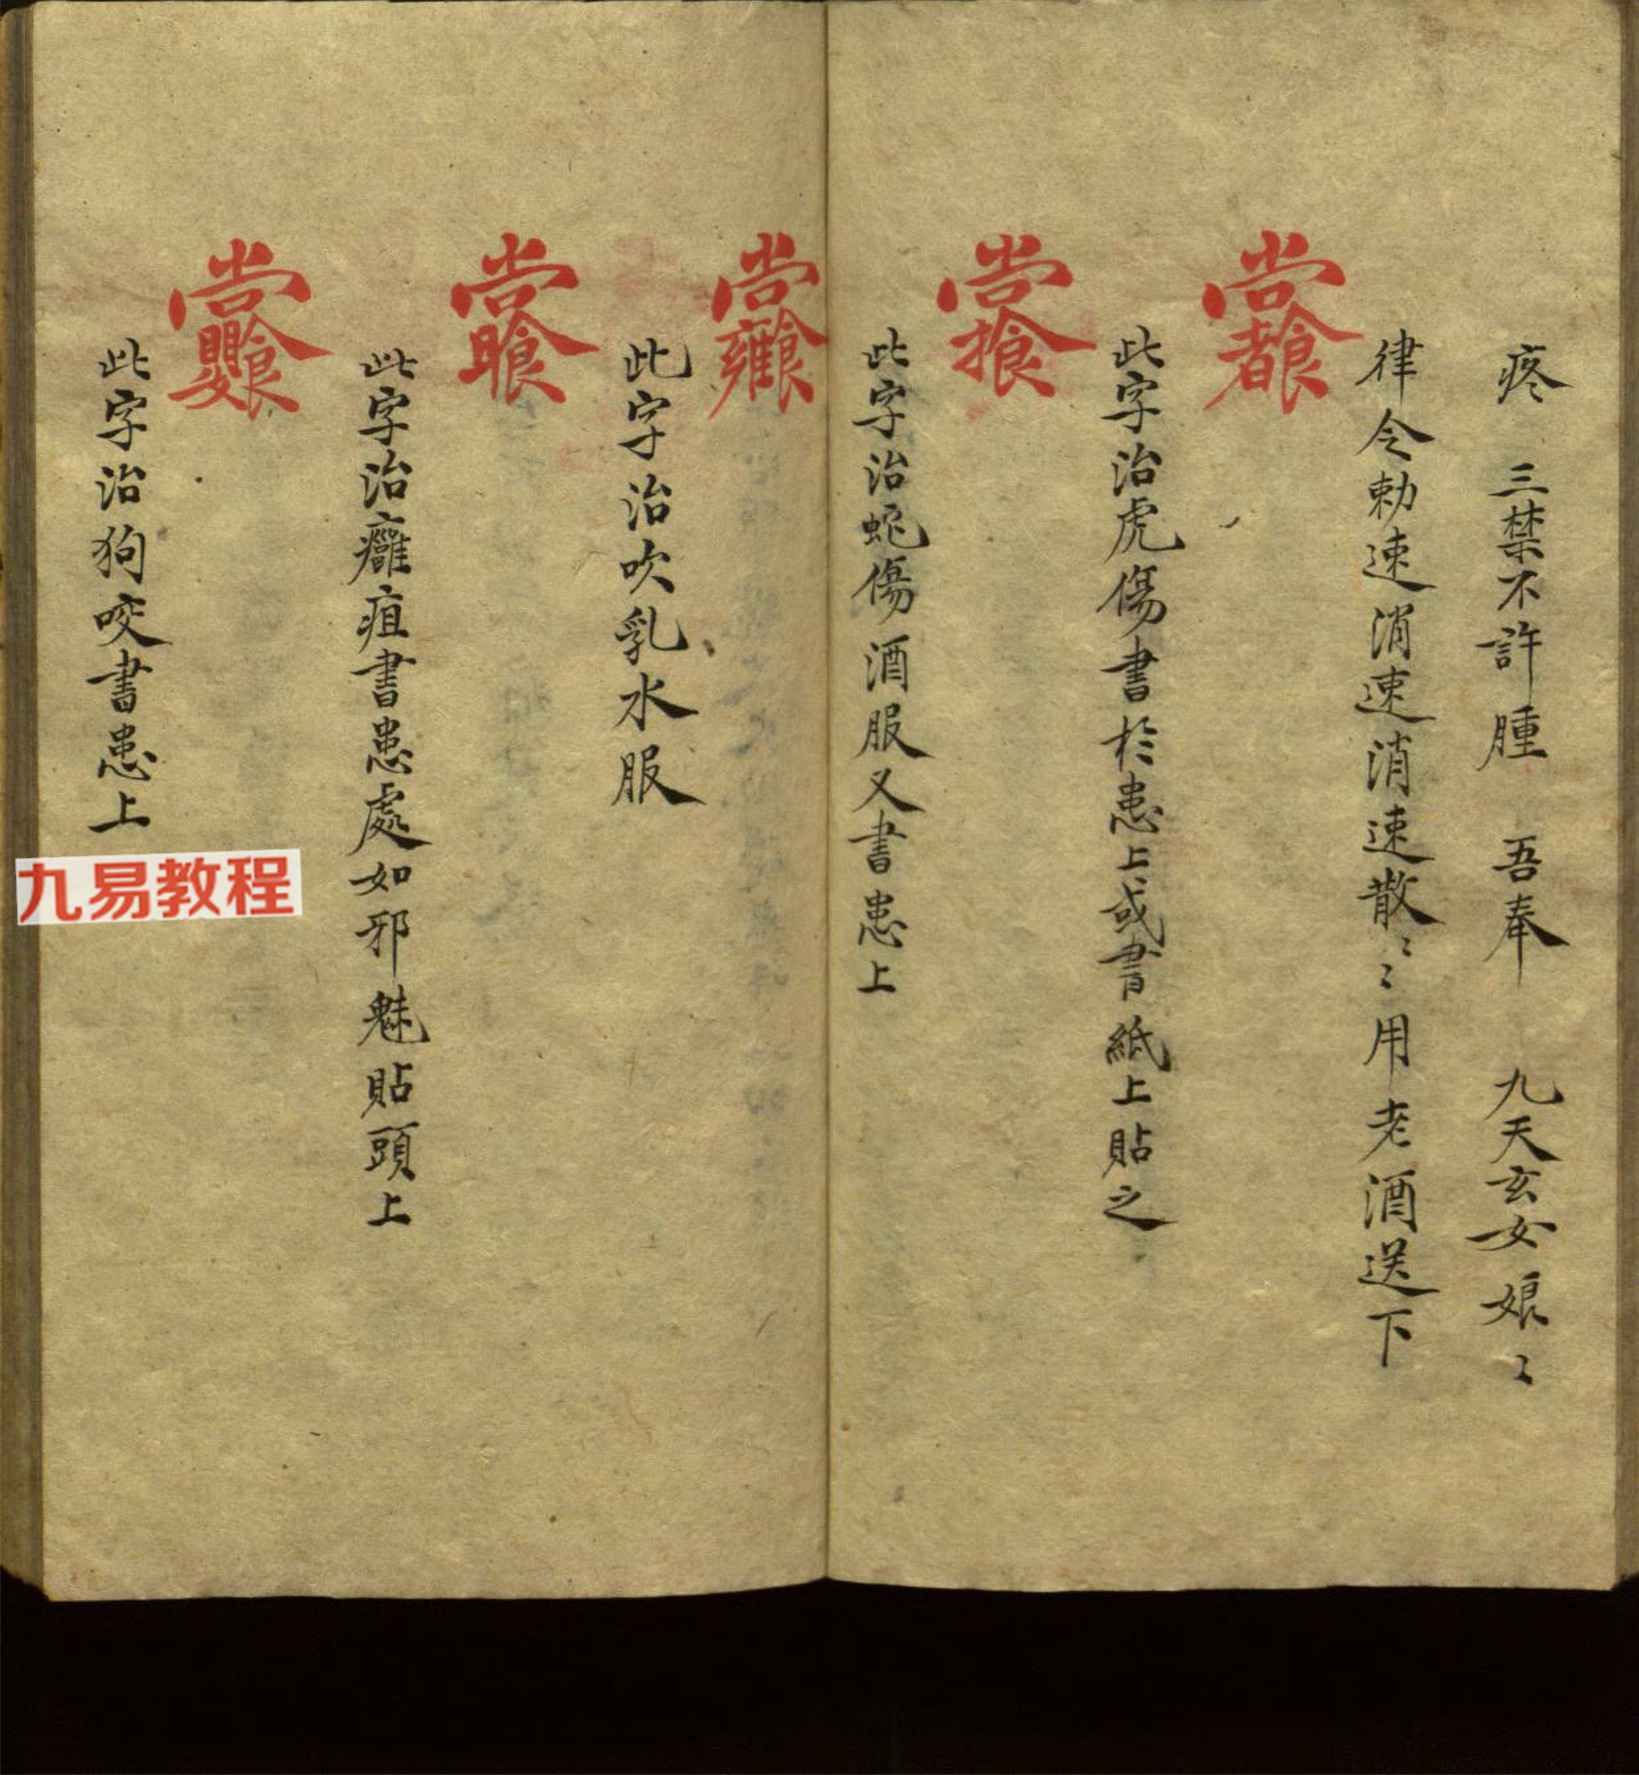 疼 三禁不許腫 吾奉 九天玄女娘〻
律令勅速消速消速散〻〻用老酒送下
此字治虎傷書於患上或書紙上貼之
此字治蛇傷酒服又書患上
此字治吹乳水服
此字治癰疽書患處如邪魅貼頭上
此字治狗咬書患上
九易教程